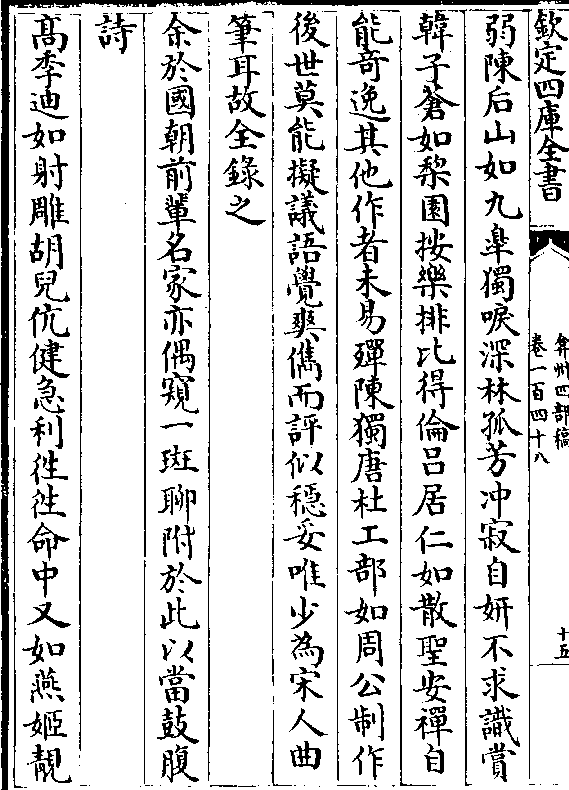 欽定四庫全書
弇州四部稿
卷一百四十八
十五
弱陳后山如九臯獨唳深林孤芳冲寂自妍不求識賞
韓子蒼如梨園按樂排比得倫吕居仁如散聖安禪自
能竒逸其他作者未易殫陳獨唐杜工部如周公制作
後世莫能擬議語覺爽儁而評似穩妥唯少為宋人曲
筆耳故全錄之
余於國朝前輩名家亦偶窺一斑聊附於此以當鼓腹
詩
髙季迪如射雕胡兒伉健急利徃徃命中又如燕姬靚